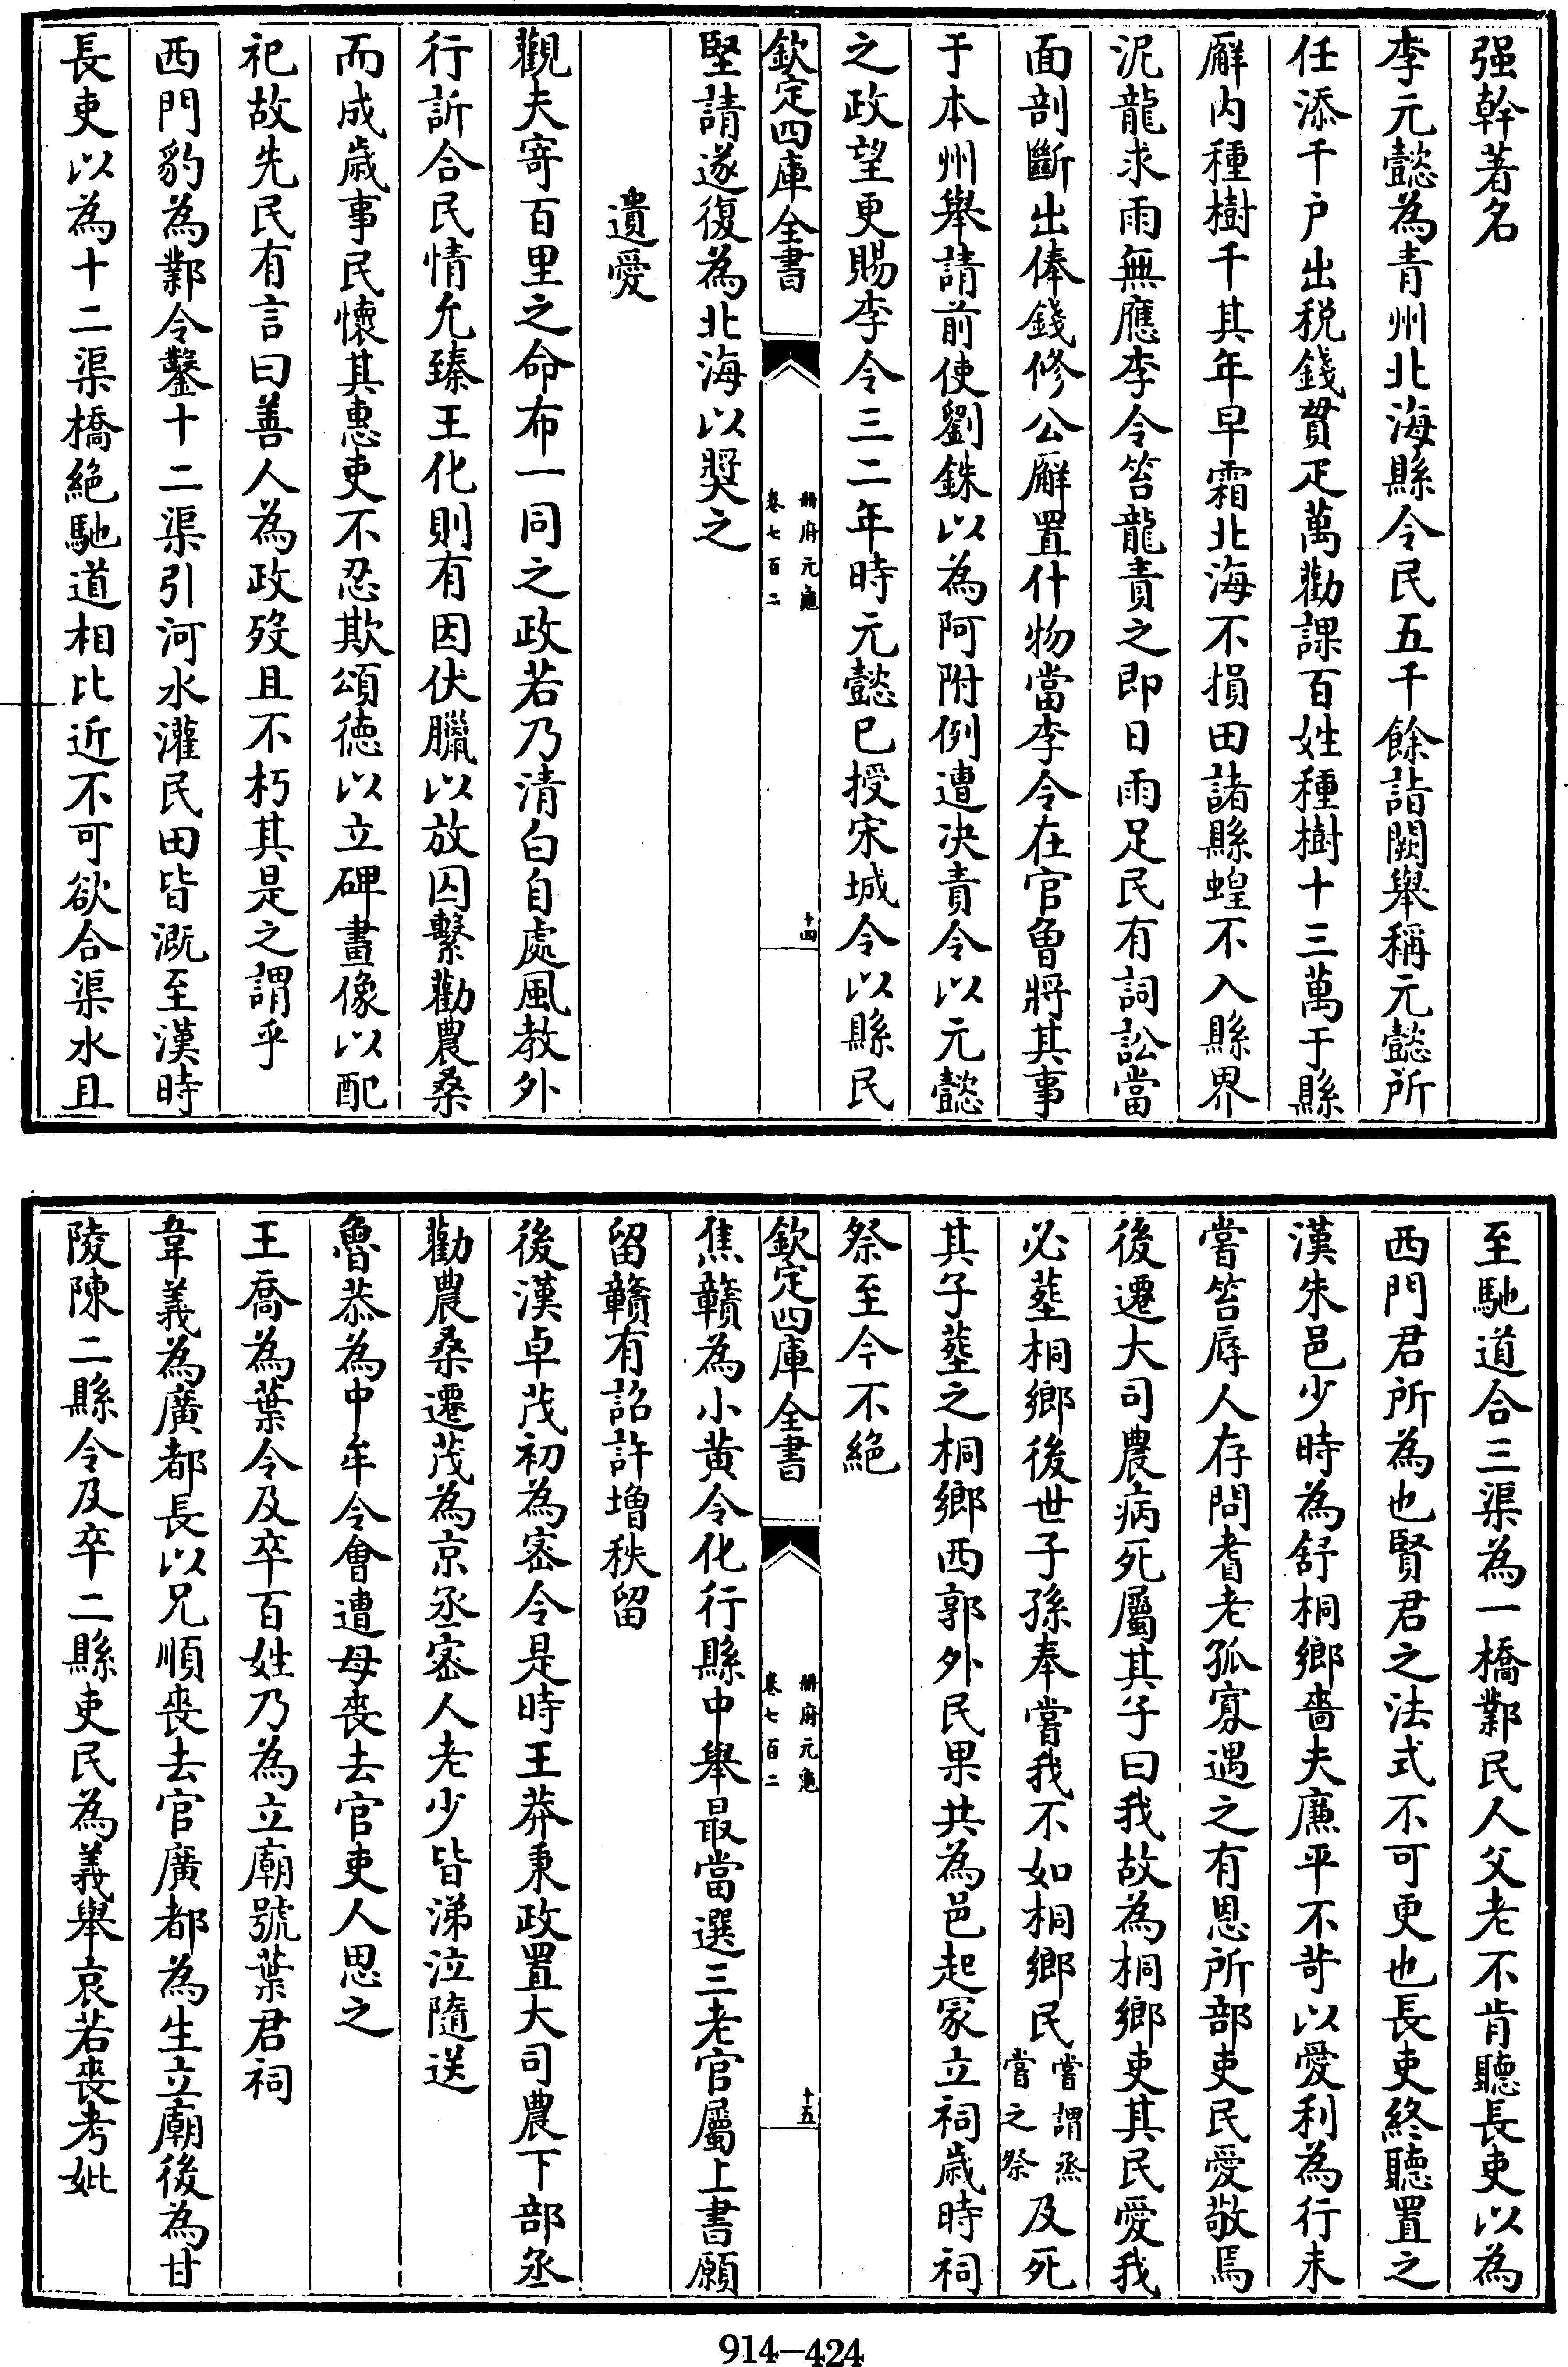 强幹著名
李元懿為青州北海縣令民五千餘詣闕舉稱元懿所
任添千户出税錢貫疋萬勸課百姓種樹十三萬于縣
廨内種樹千其年早霜北海不損田諸縣蝗不入縣界
泥龍求雨無應李令笞龍責之即日雨足民有詞訟當
面剖斷出俸錢修公廨置什物當李令在官曾將其事
于本州舉請前使劉銖以為阿附例遭决責令以元懿
之政望更賜李令三二年時元懿已授宋城令以縣民
欽定四庫全書
册府元龜
卷七百二
十四
堅請遂復為北海以奬之
遺愛
觀夫寄百里之命布一同之政若乃清白自處風教外
行訢合民情允臻王化則有因伏臘以放囚繫勸農桑
而成歲事民懷其惠吏不忍欺頌徳以立碑畫像以配
祀故先民有言曰善人為政歿且不朽其是之謂乎
西門豹為鄴令鑿十二渠引河水灌民田皆溉至漢時
長吏以為十二渠橋絶馳道相比近不可欲合渠水且
至馳道合三渠為一橋鄴民人父老不肯聽長吏以為
西門君所為也賢君之法式不可更也長吏終聽置之
漢朱邑少時為舒桐鄉嗇夫亷平不苛以愛利為行未
嘗笞辱人存問耆老孤寡遇之有恩所部吏民愛敬焉
後遷大司農病死屬其子曰我故為桐鄉吏其民愛我
必塟桐鄉後世子孫奉嘗我不如桐鄉民嘗謂烝嘗之祭及死
其子塟之桐鄉西郭外民果共為邑起冢立祠歲時祠
祭至今不絶
欽定四庫全書
册府元龜
卷七百二
十五
焦贛為小黄令化行縣中舉最當選三老官屬上書願
留贛有詔許増秩留
後漢卓茂初為宻令是時王莽秉政置大司農下部丞
勸農桑遷茂為京丞宻人老少皆涕泣隨送
魯恭為中牟令會遭母喪去官吏人思之
王喬為葉令及卒百姓乃為立廟號葉君祠
韋義為廣都長以兄順喪去官廣都為生立廟後為甘
陵陳二縣令及卒二縣吏民為義舉哀若喪考妣
914-424